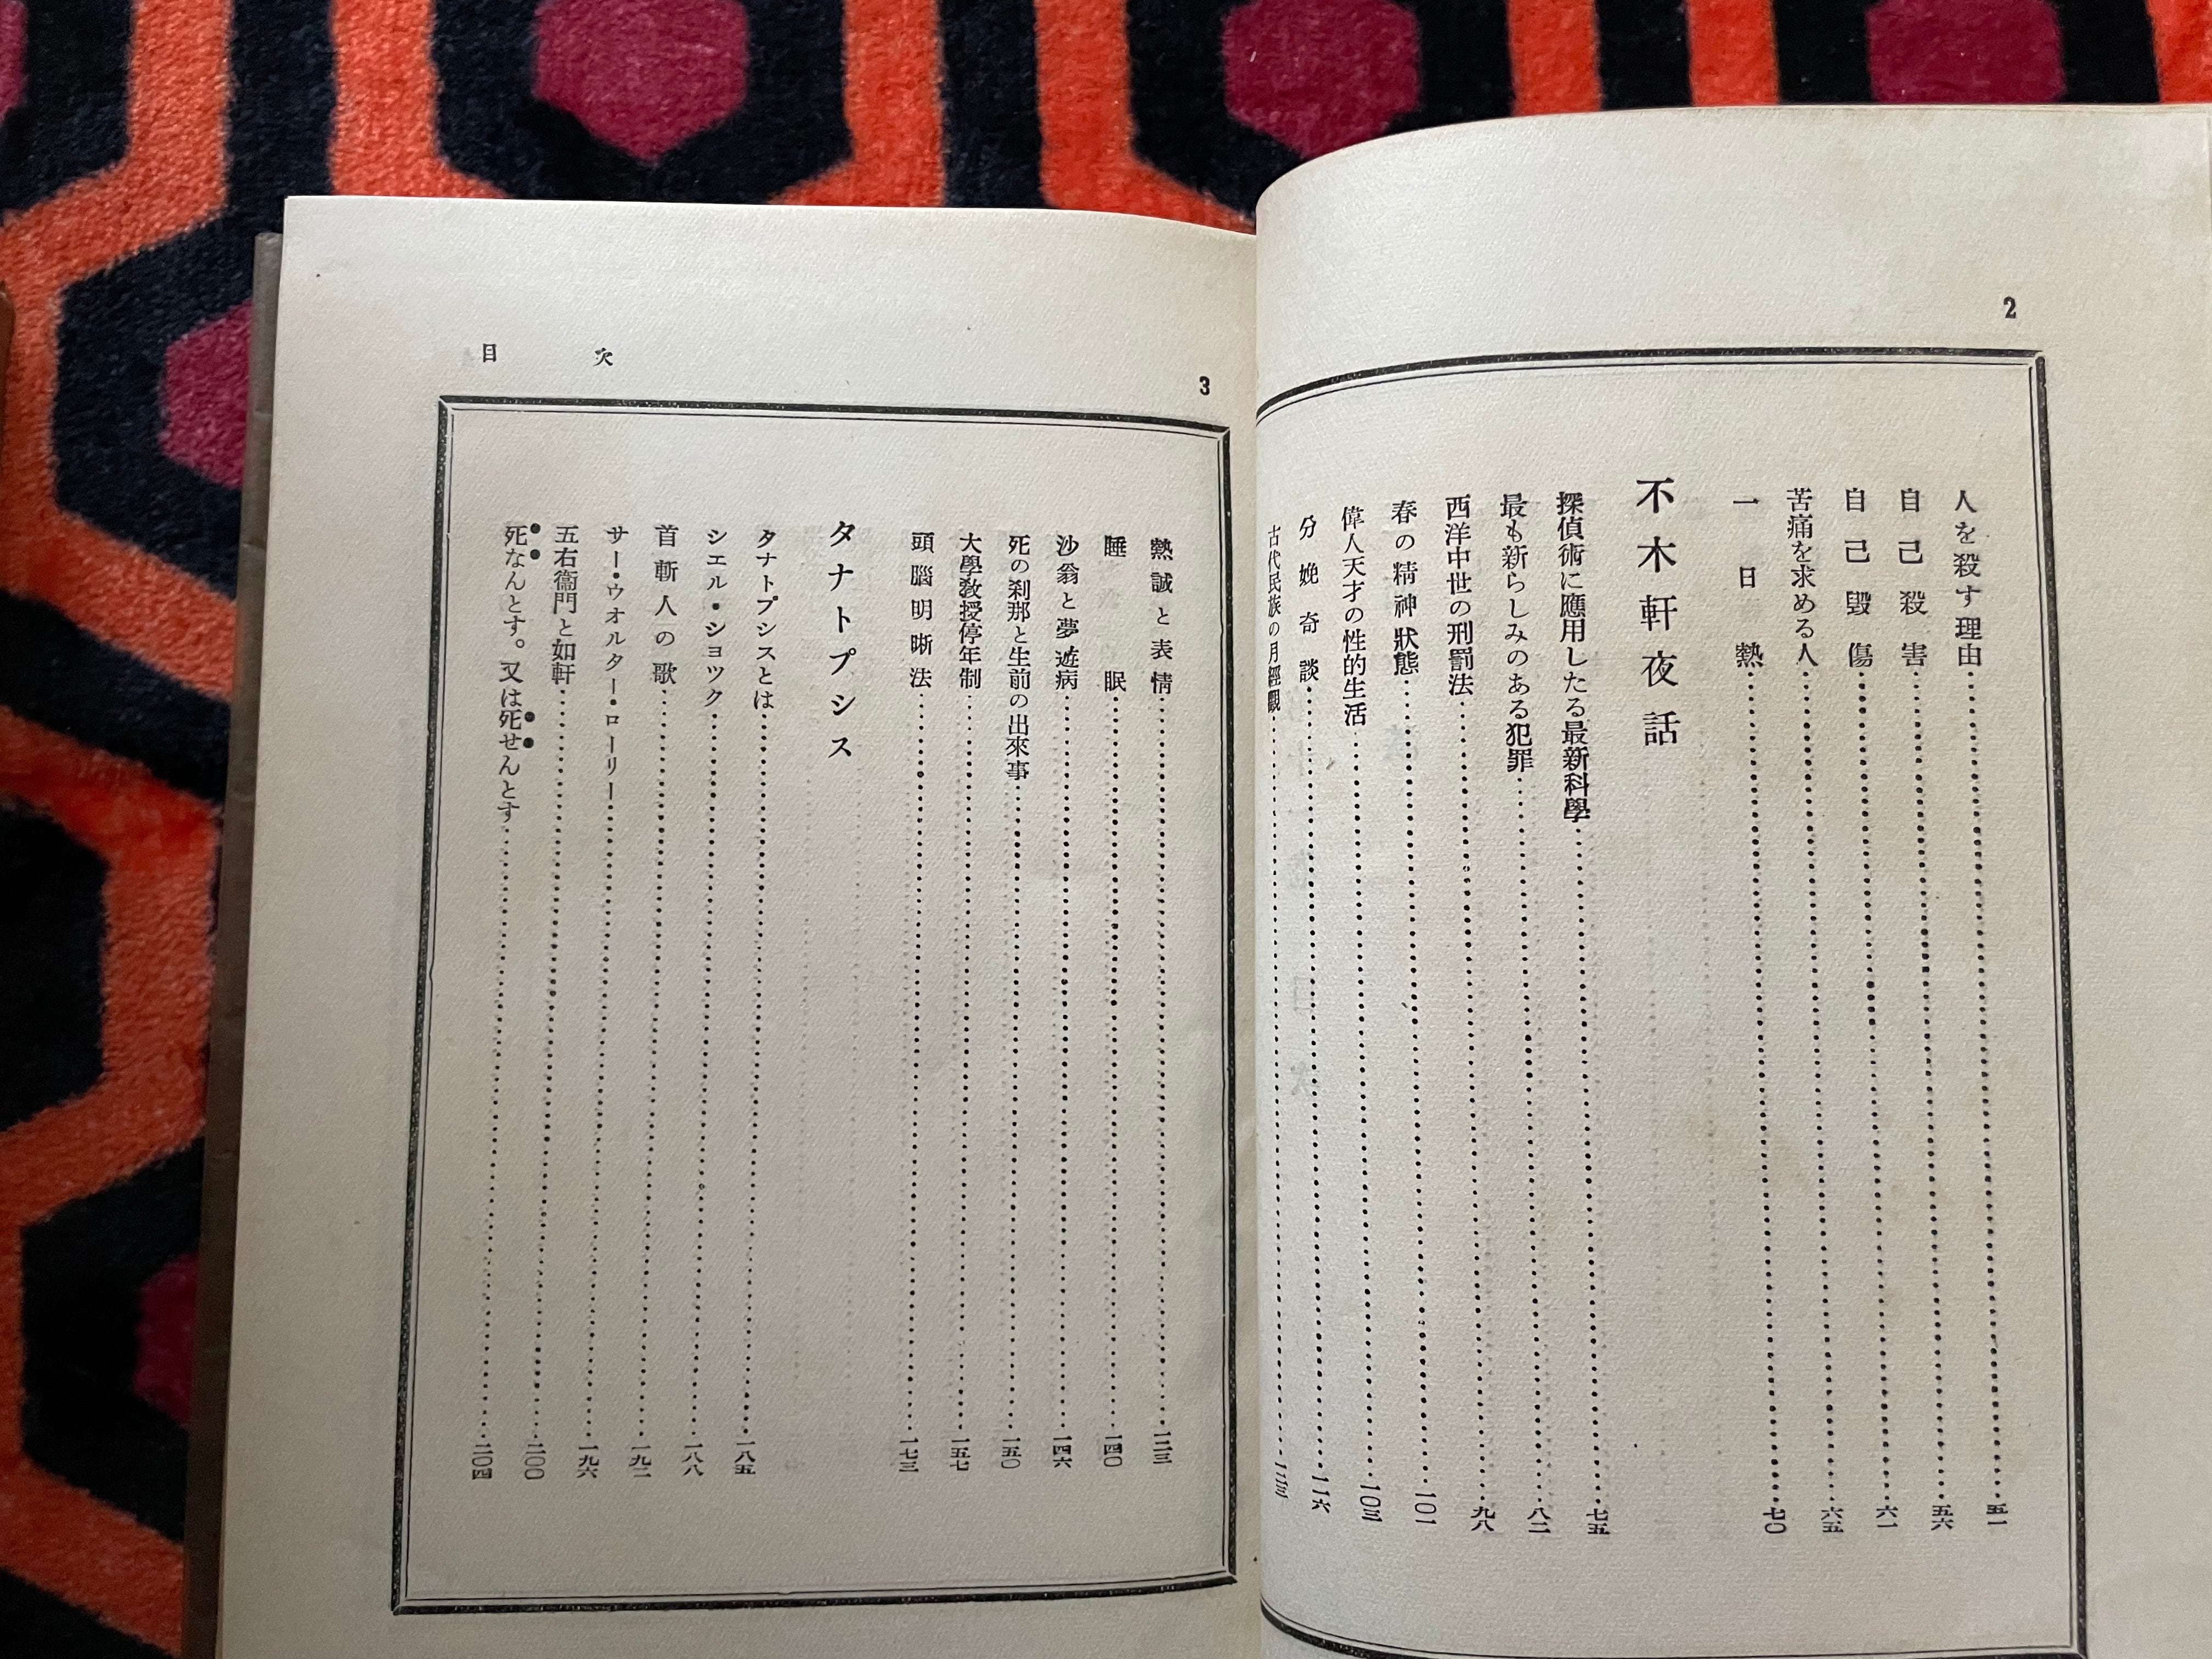 2
人を殺す理由…………五一
自己殺害…………五六
自己毀傷…………六一
苦痛を求める人…………六五
一日熱…………七〇
不木軒夜話
探偵術に應用したる最新科學…………七五
最も新らしみのある犯罪…………八二
西洋中世の刑罰法…………九八
春の精神狀態…………一〇一
偉人天才の性的生活…………一〇三
分娩奇談…………一一六
古代民族の月經觀…………
目次
3
熱誠と表情…………一二三
睡眠…………一四〇
沙翁と夢遊病…………一四六
死の刹那と生前の出來事…………一五〇
大學敎授停年制…………一五七
頭腦明晰法…………一七三
タナトプシス
タナトプシスとは…………一八五
シエル・シヨツク…………一八八
首斬人の歌…………一九二
サー・ウオルター・ローリー…………一九六
五右衞門と如軒…………二〇〇
死なんとす。又は死せんとす…………二〇四